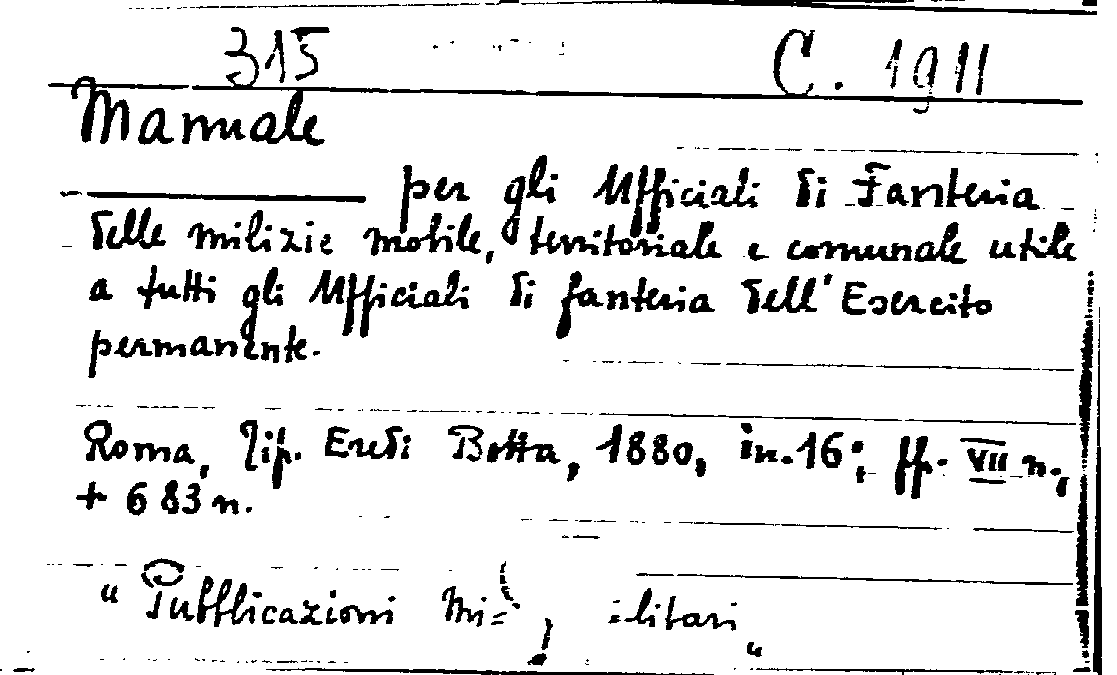 315 C. 1911
Manuale
per gli Ufficiali di Fanteria
delle milizie mobile, territoriale e comunale utile
a tutti gli Ufficiali di fanteria dell'Esercito
permanente.
Roma, Tip. Eredi Botta, 1880, in.16°; pp. VII n.,
+ 683 n.
"Pubblicazioni Mi= litari"